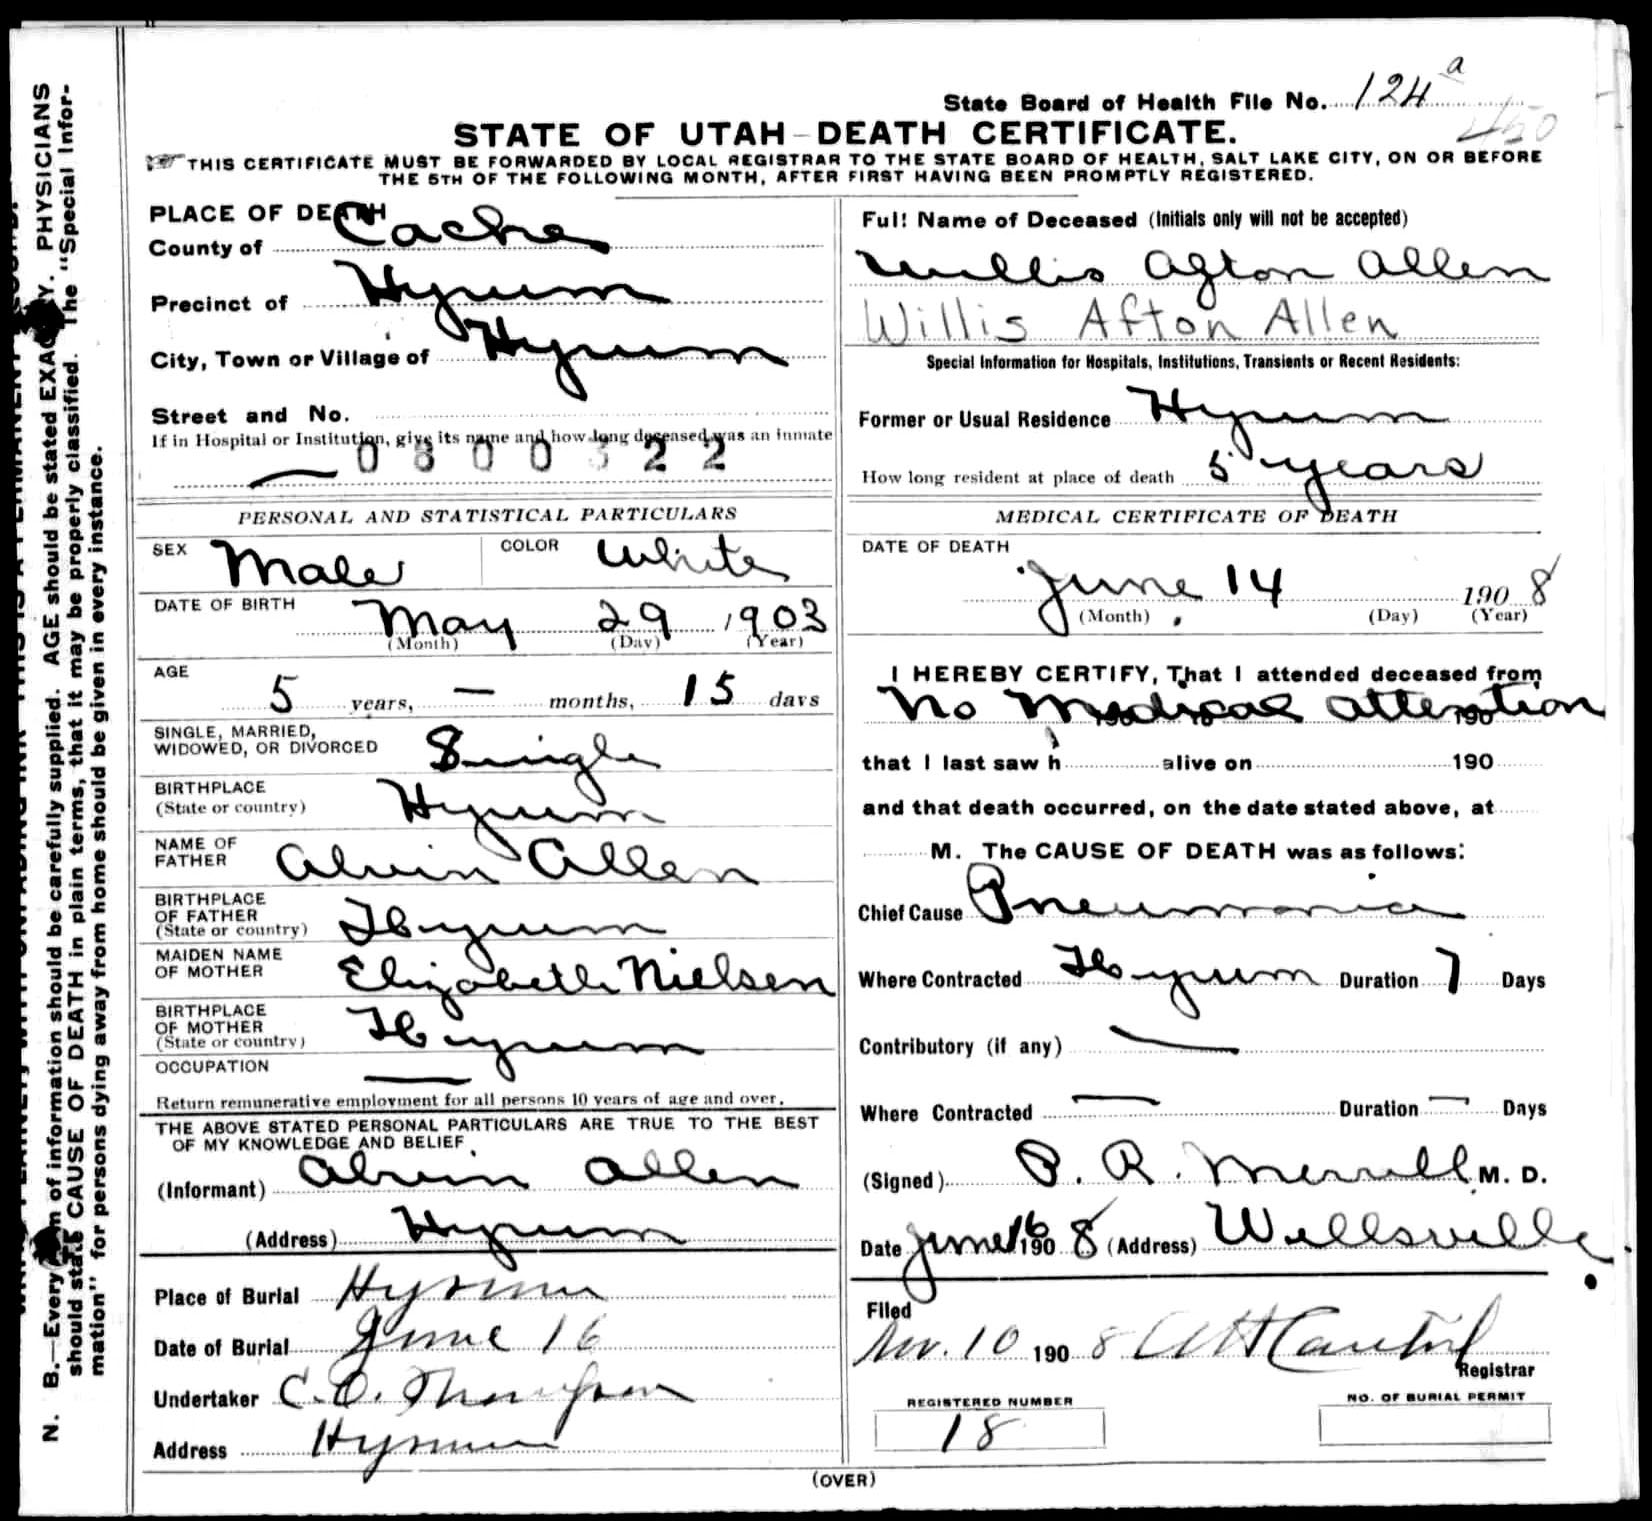 State Board of Health File No. 124 a
450
STATE OF UTAH-DEATH CERTIFICATE.
THIS CERTIFICATE MUST BE FORWARDED BY LOCAL REGISTRAR TO THE STATE BOARD OF HEALTH, SALT LAKE CITY, ON OR BEFORE
THE 5TH OF THE FOLLOWING MONTH, AFTER FIRST HAVING BEEN PROMPTLY REGISTERED.
PLACE OF DEATH
County of Cache
Precinct of Hyrum
City, Town or Village of Hyrum
Street and No.
If in Hospital or Institution, give its name and how long deceased was an inmate
0800322
PERSONAL AND STATISTICAL PARTICULARS
SEX Male COLOR White
DATE OF BIRTH
May 29 1903
(Month) (Day) (Year)
AGE
5 years, — months, 15 days
SINGLE, MARRIED,
WIDOWED, OR DIVORCED Single
BIRTHPLACE
(State or country) Hyrum
NAME OF
FATHER Alvin Allen
BIRTHPLACE
OF FATHER
(State or country) Hyrum
MAIDEN NAME
OF MOTHER Elizabeth Nielsen
BIRTHPLACE
OF MOTHER
(State or country) Hyrum
OCCUPATION —
Return remunerative employment for all persons 10 years of age and over.
THE ABOVE STATED PERSONAL PARTICULARS ARE TRUE TO THE BEST
OF MY KNOWLEDGE AND BELIEF.
(Informant) Alvin Allen
(Address) Hyrum
Place of Burial Hyrum
Date of Burial June 16
Undertaker C. O. Thompson
Address Hyrum
Full Name of Deceased (Initials only will not be accepted)
Willis Afton Allen
Willis Afton Allen
Special Information for Hospitals, Institutions, Transients or Recent Residents:
Former or Usual Residence Hyrum
How long resident at place of death 5 years
MEDICAL CERTIFICATE OF DEATH
DATE OF DEATH
June 14 1908
(Month) (Day) (Year)
I HEREBY CERTIFY, That I attended deceased from
No Medical attention 190
that I last saw h alive on 190
and that death occurred, on the date stated above, at
M. The CAUSE OF DEATH was as follows:
Chief Cause Pneumonia
Where Contracted Hyrum Duration 7 Days
Contributory (if any) —
Where Contracted — Duration — Days
(Signed) P. R. Merrill M. D.
Date June 16 1908 (Address) Wellsville.
Filed
Nov. 10 1908 Registrar
REGISTERED NUMBER
18
NO. OF BURIAL PERMIT
(OVER)
N. B.—Every item of information should be carefully supplied. AGE should be stated EXACTLY. PHYSICIANS
should state CAUSE OF DEATH in plain terms, that it may be properly classified. The "Special Infor-
mation" for persons dying away from home should be given in every instance.